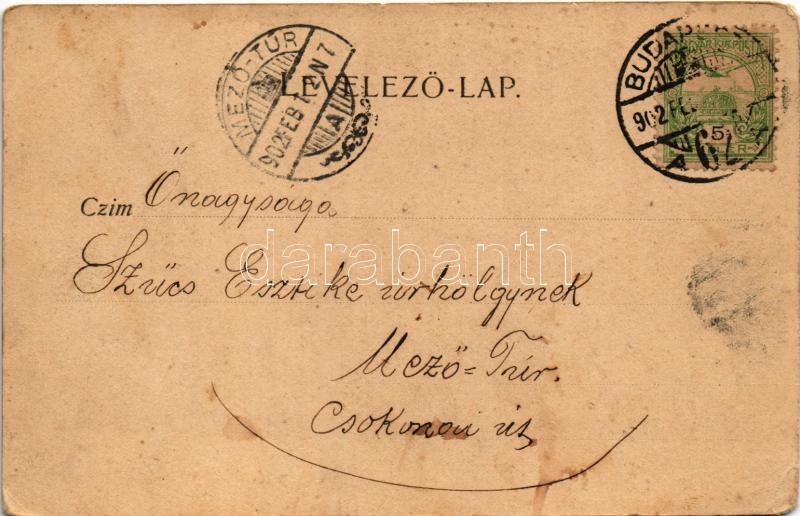 MEZŐ-TÚR
902 FEB 1 N 7
A
LEVELEZŐ-LAP.
BUDAPEST
902 FE
62
MAGYAR KIR. POSTA
5
Czim Őnagysága
Szűcs Esztike úrhölgynek
darabanth
Mező-Túr.
Csokonai út